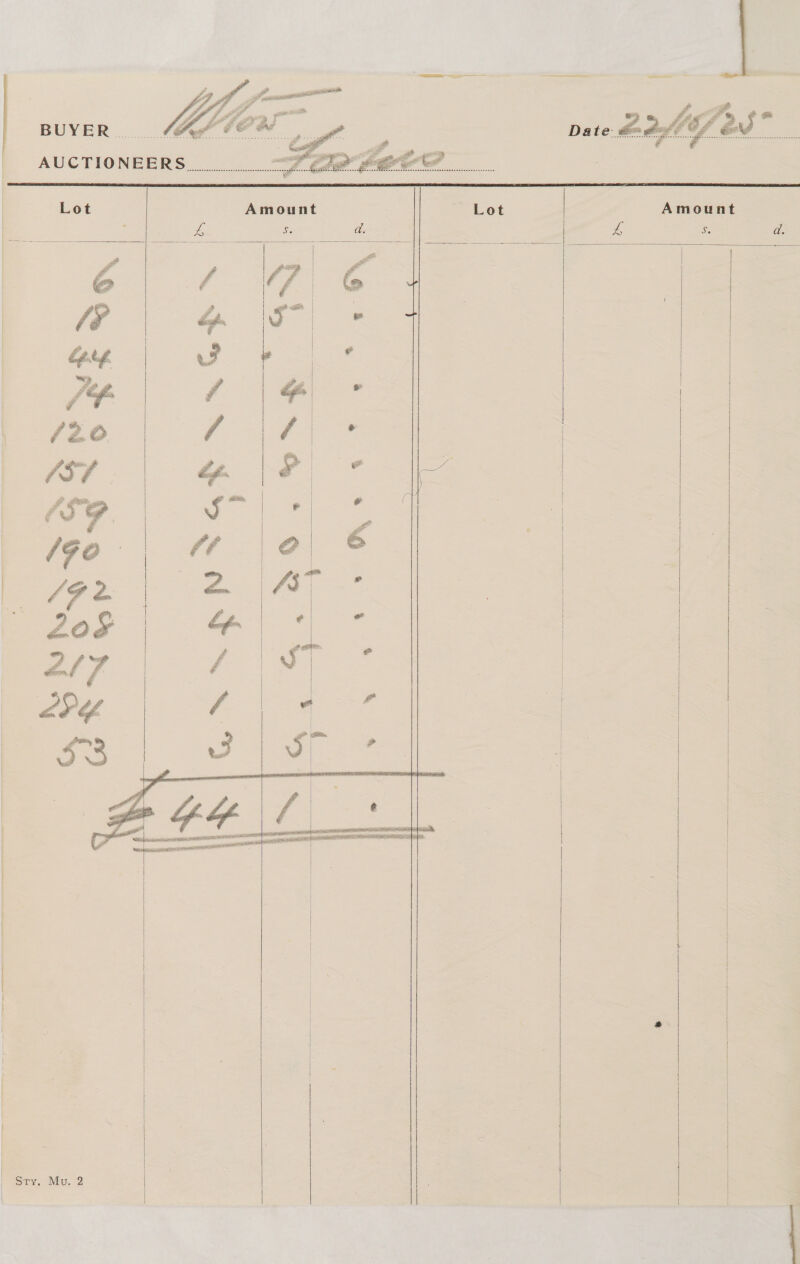 BUYER
Date 22/10/25
AUCTIONEERS Fosters
Lot Amount Lot Amount
£ s. d. £ s. d.
6 1 17 6
18 4 5 "
44 3 " "
74 1 4 "
120 1 1 "
151 4 8 "
159 5 " "
190 11 0 6
192 2 15 "
208 4 " "
217 1 5 "
284 1 " "
53 3 5 "
£ 44 1 "
Sty. Mu. 2